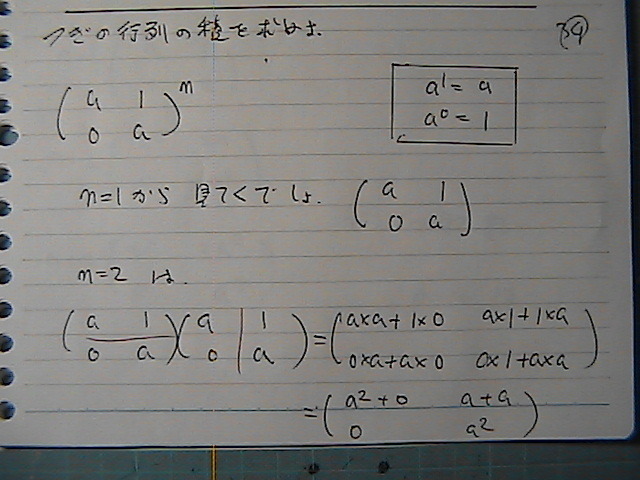 つぎの行列の積を求めよ.
39
( a 1
0 a )^n
a^1 = a
a^0 = 1
n=1から 見てくでしょ. ( a 1
0 a )
n=2 は.
( a 1
0 a )( a 1
0 a ) = ( a×a+1×0 a×1+1×a
0×a+a×0 0×1+a×a )
= ( a^2+0 a+a
0 a^2 )